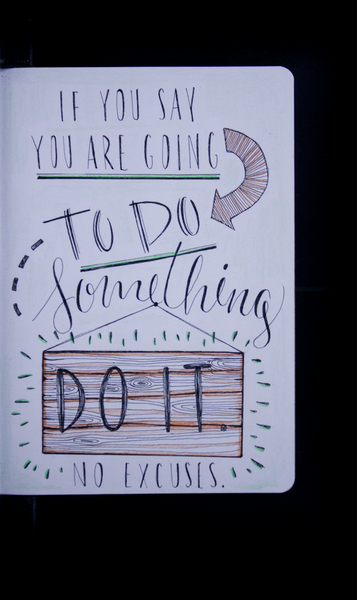 IF YOU SAY
YOU ARE GOING
TO DO
something
DO IT.
NO EXCUSES.